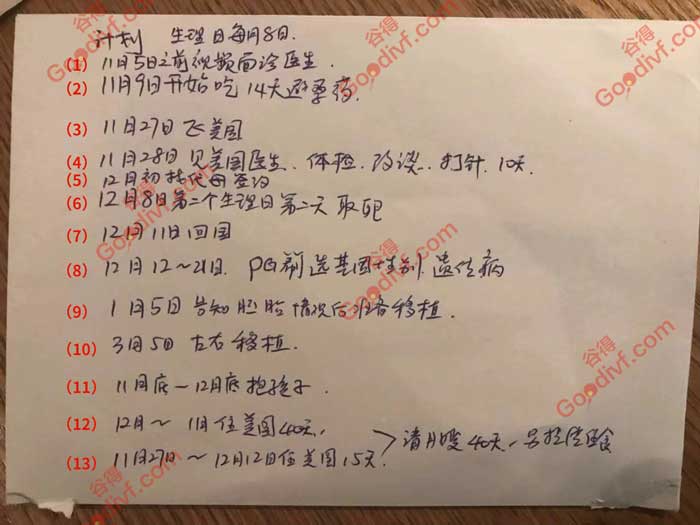 计划 生理日每月8日.
(1) 11月5日之前视频面诊医生.
(2) 11月9日开始吃14天避孕药.
(3) 11月27日飞美国
(4) 11月28日见美国医生.体检.改谈.打针.10天.
(5) 12月初找代母签约
(6) 12月8日第二个生理日第二天取卵
(7) 12月11日回国
(8) 12月12~21日. PG筛选基因性别遗传病
(9) 1月5日告知胚胎情况后准备移植.
(10) 3月5日左右移植.
(11) 11月底-12月底抱孩子.
(12) 12月~1月住美国40天,
请月嫂40天,
(13) 11月27日~12月12日住美国15天.
谷得
Goodivf.com
谷得
Goodivf.com
谷得
Goodivf.com
谷得
Goodivf.com
谷得
Goodivf.com
谷得
Goodivf.com